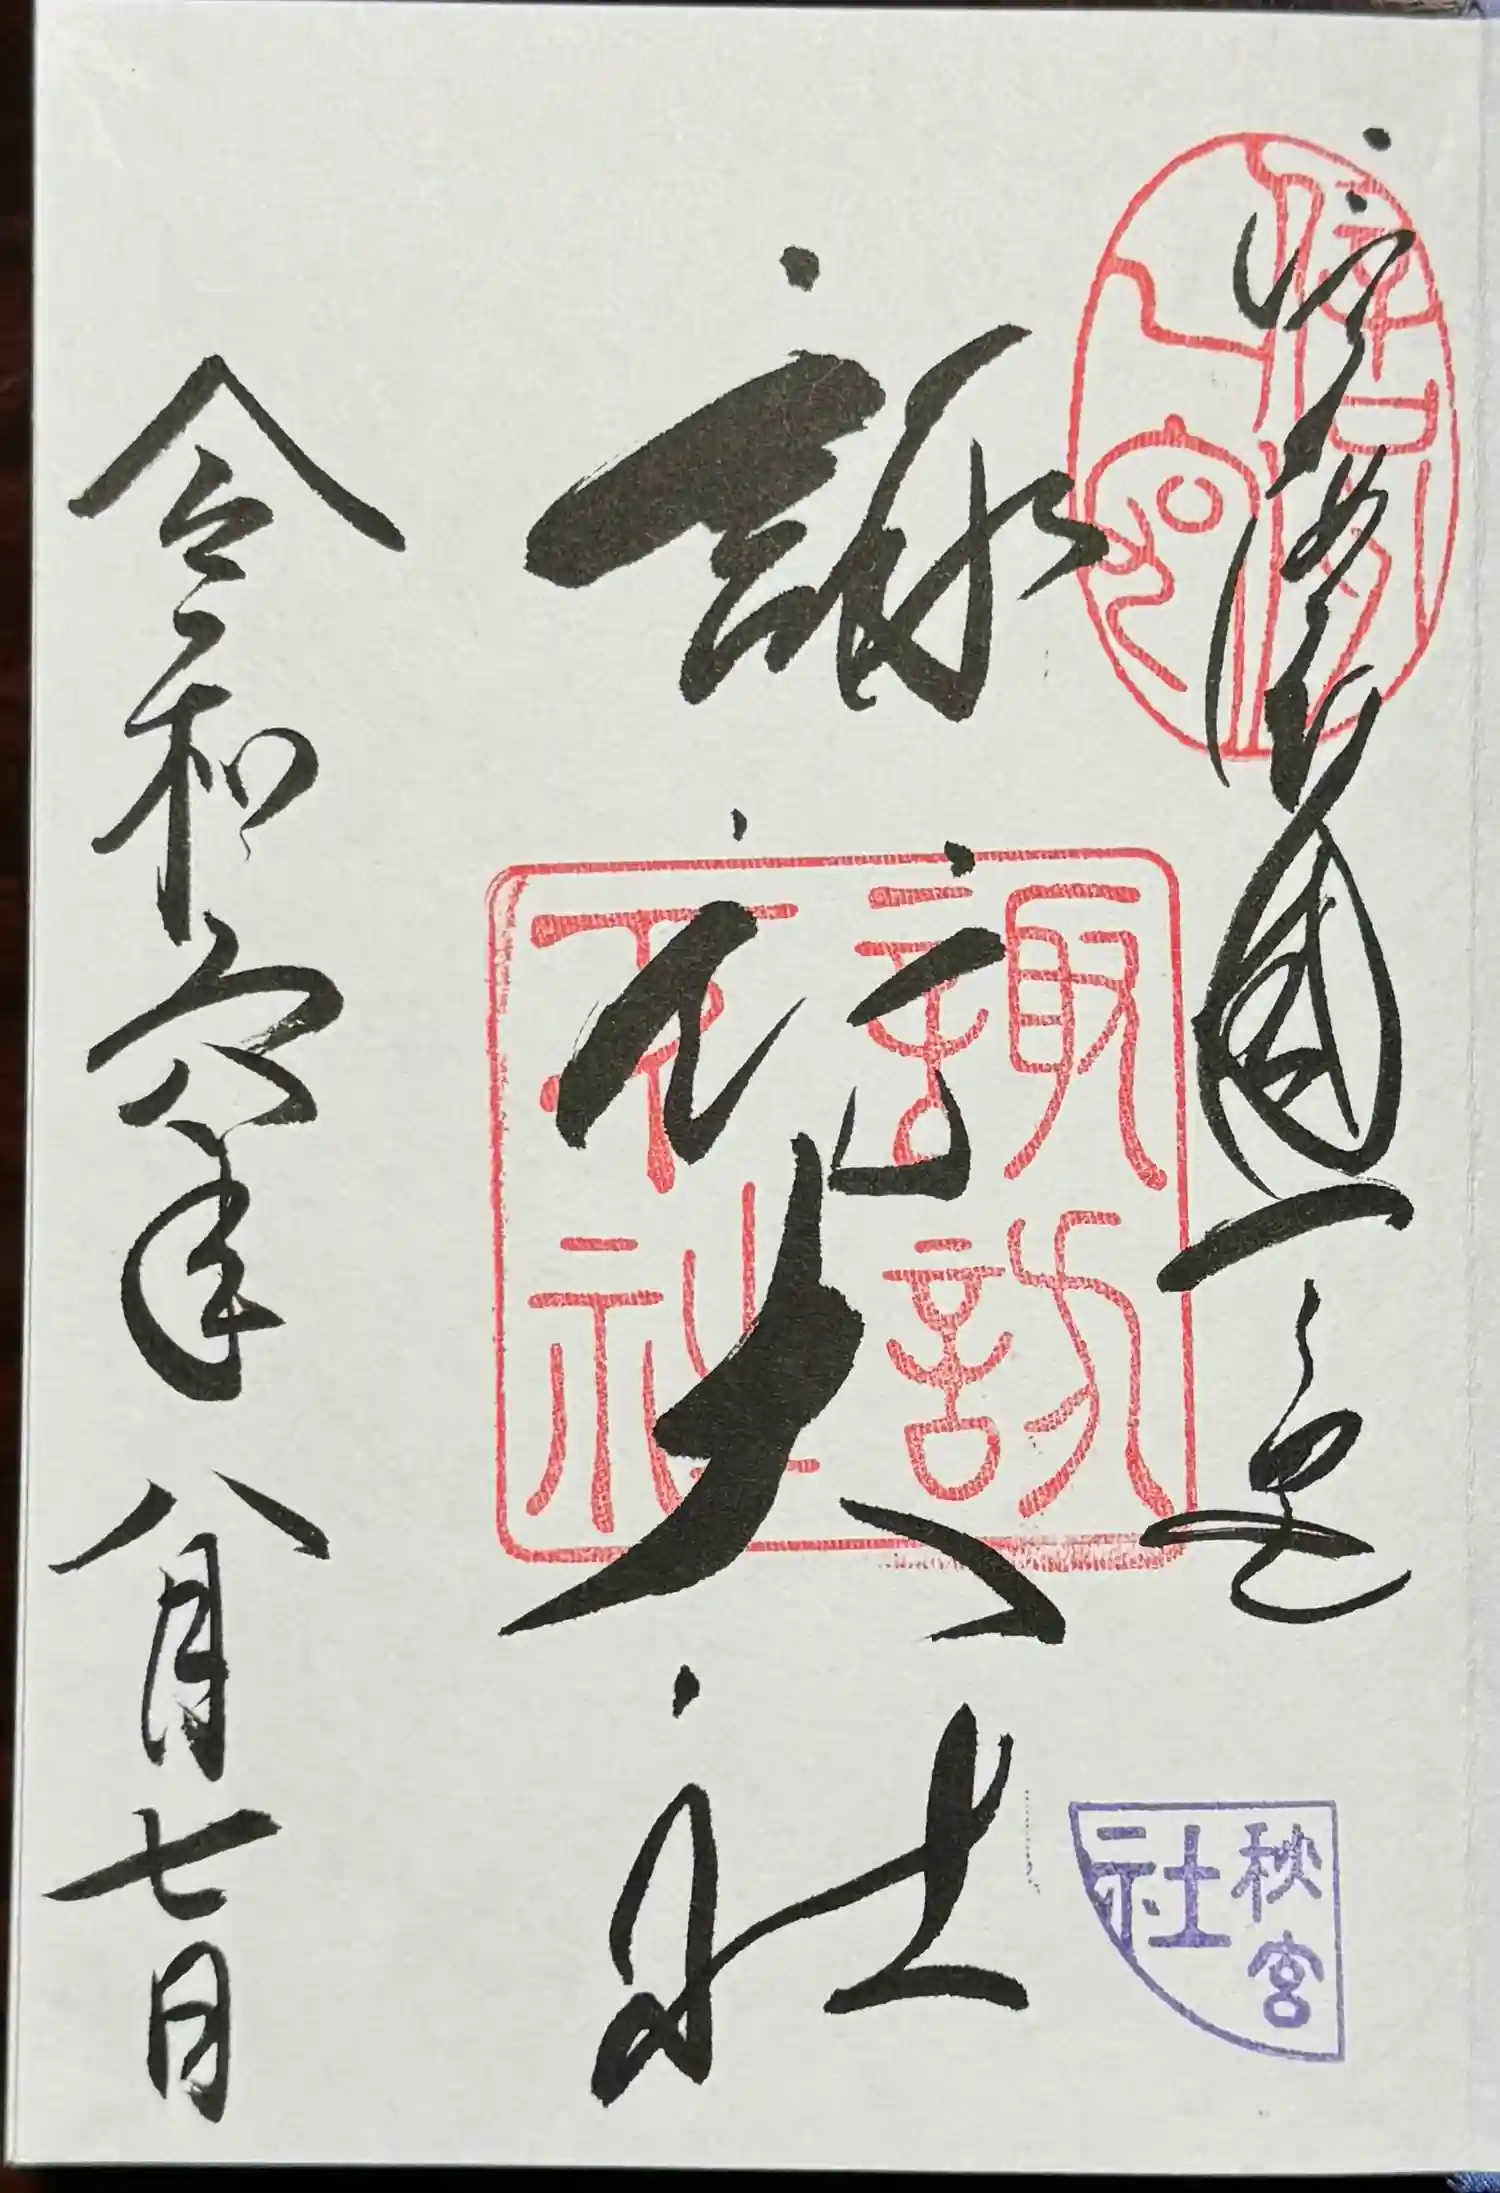 信濃國一之宮
諏訪大社
令和六年八月七日
諏訪
下社
秋宮
社